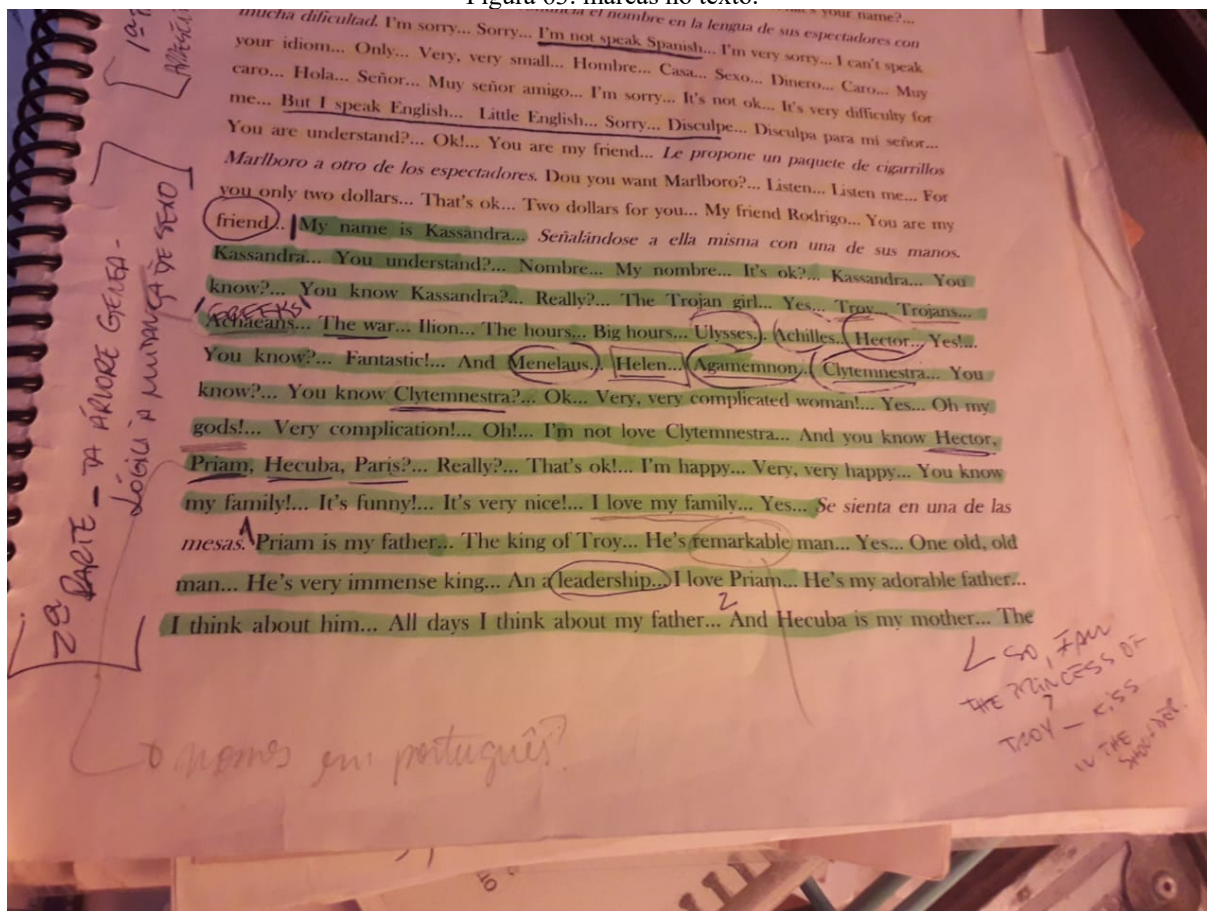 Figura 65: marcas no texto.
mucha dificultad. I'm sorry... Sorry... I'm not speak Spanish... I'm very sorry... I can't speak
el nombre en la lengua de sus espectadores con
your name?...
your idiom... Only... Very, very small... Hombre... Casa... Sexo... Dinero... Caro... Muy
caro... Hola... Señor... Muy señor amigo... I'm sorry... It's not ok... It's very difficulty for
me... But I speak English... Little English... Sorry... Disculpe... Disculpa para mi señor...
You are understand?... Ok!... You are my friend... Le propone un paquete de cigarrillos
Marlboro a otro de los espectadores. Dou you want Marlboro?... Listen... Listen me... For
you only two dollars... That's ok... Two dollars for you... My friend Rodrigo... You are my
friend... My name is Kassandra... Señalándose a ella misma con una de sus manos.
Kassandra... You understand?... Nombre... My nombre... It's ok?... Kassandra... You
know?... You know Kassandra?... Really?... The Trojan girl... Yes... Troy... Trojans...
GREEKS
Achaeans... The war... Ilion... The hours... Big hours... Ulysses... Achilles... Hector... Yes!...
You know?... Fantastic!... And Menelaus... Helen... Agamemnon... Clytemnestra... You
know?... You know Clytemnestra?... Ok... Very, very complicated woman!... Yes... Oh my
gods!... Very complication!... Oh!... I'm not love Clytemnestra... And you know Hector,
Priam, Hecuba, Paris?... Really?... That's ok!... I'm happy... Very, very happy... You know
my family!... It's funny!... It's very nice!... I love my family... Yes... Se sienta en una de las
mesas. 1 Priam is my father... The king of Troy... He's remarkable man... Yes... One old, old
man... He's very immense king... An a leadership... I love Priam... He's my adorable father...
I think about him... All days I think about my father... 2 And Hecuba is my mother... The
1ª
2ª PARTE – DA ÁRVORE GENEA-
LÓGICA À MUDANÇA DE SEXO
SO, I AM
THE PRINCESS OF
TROY – KISS
IN THE
SHOULDER.
nomes em português?